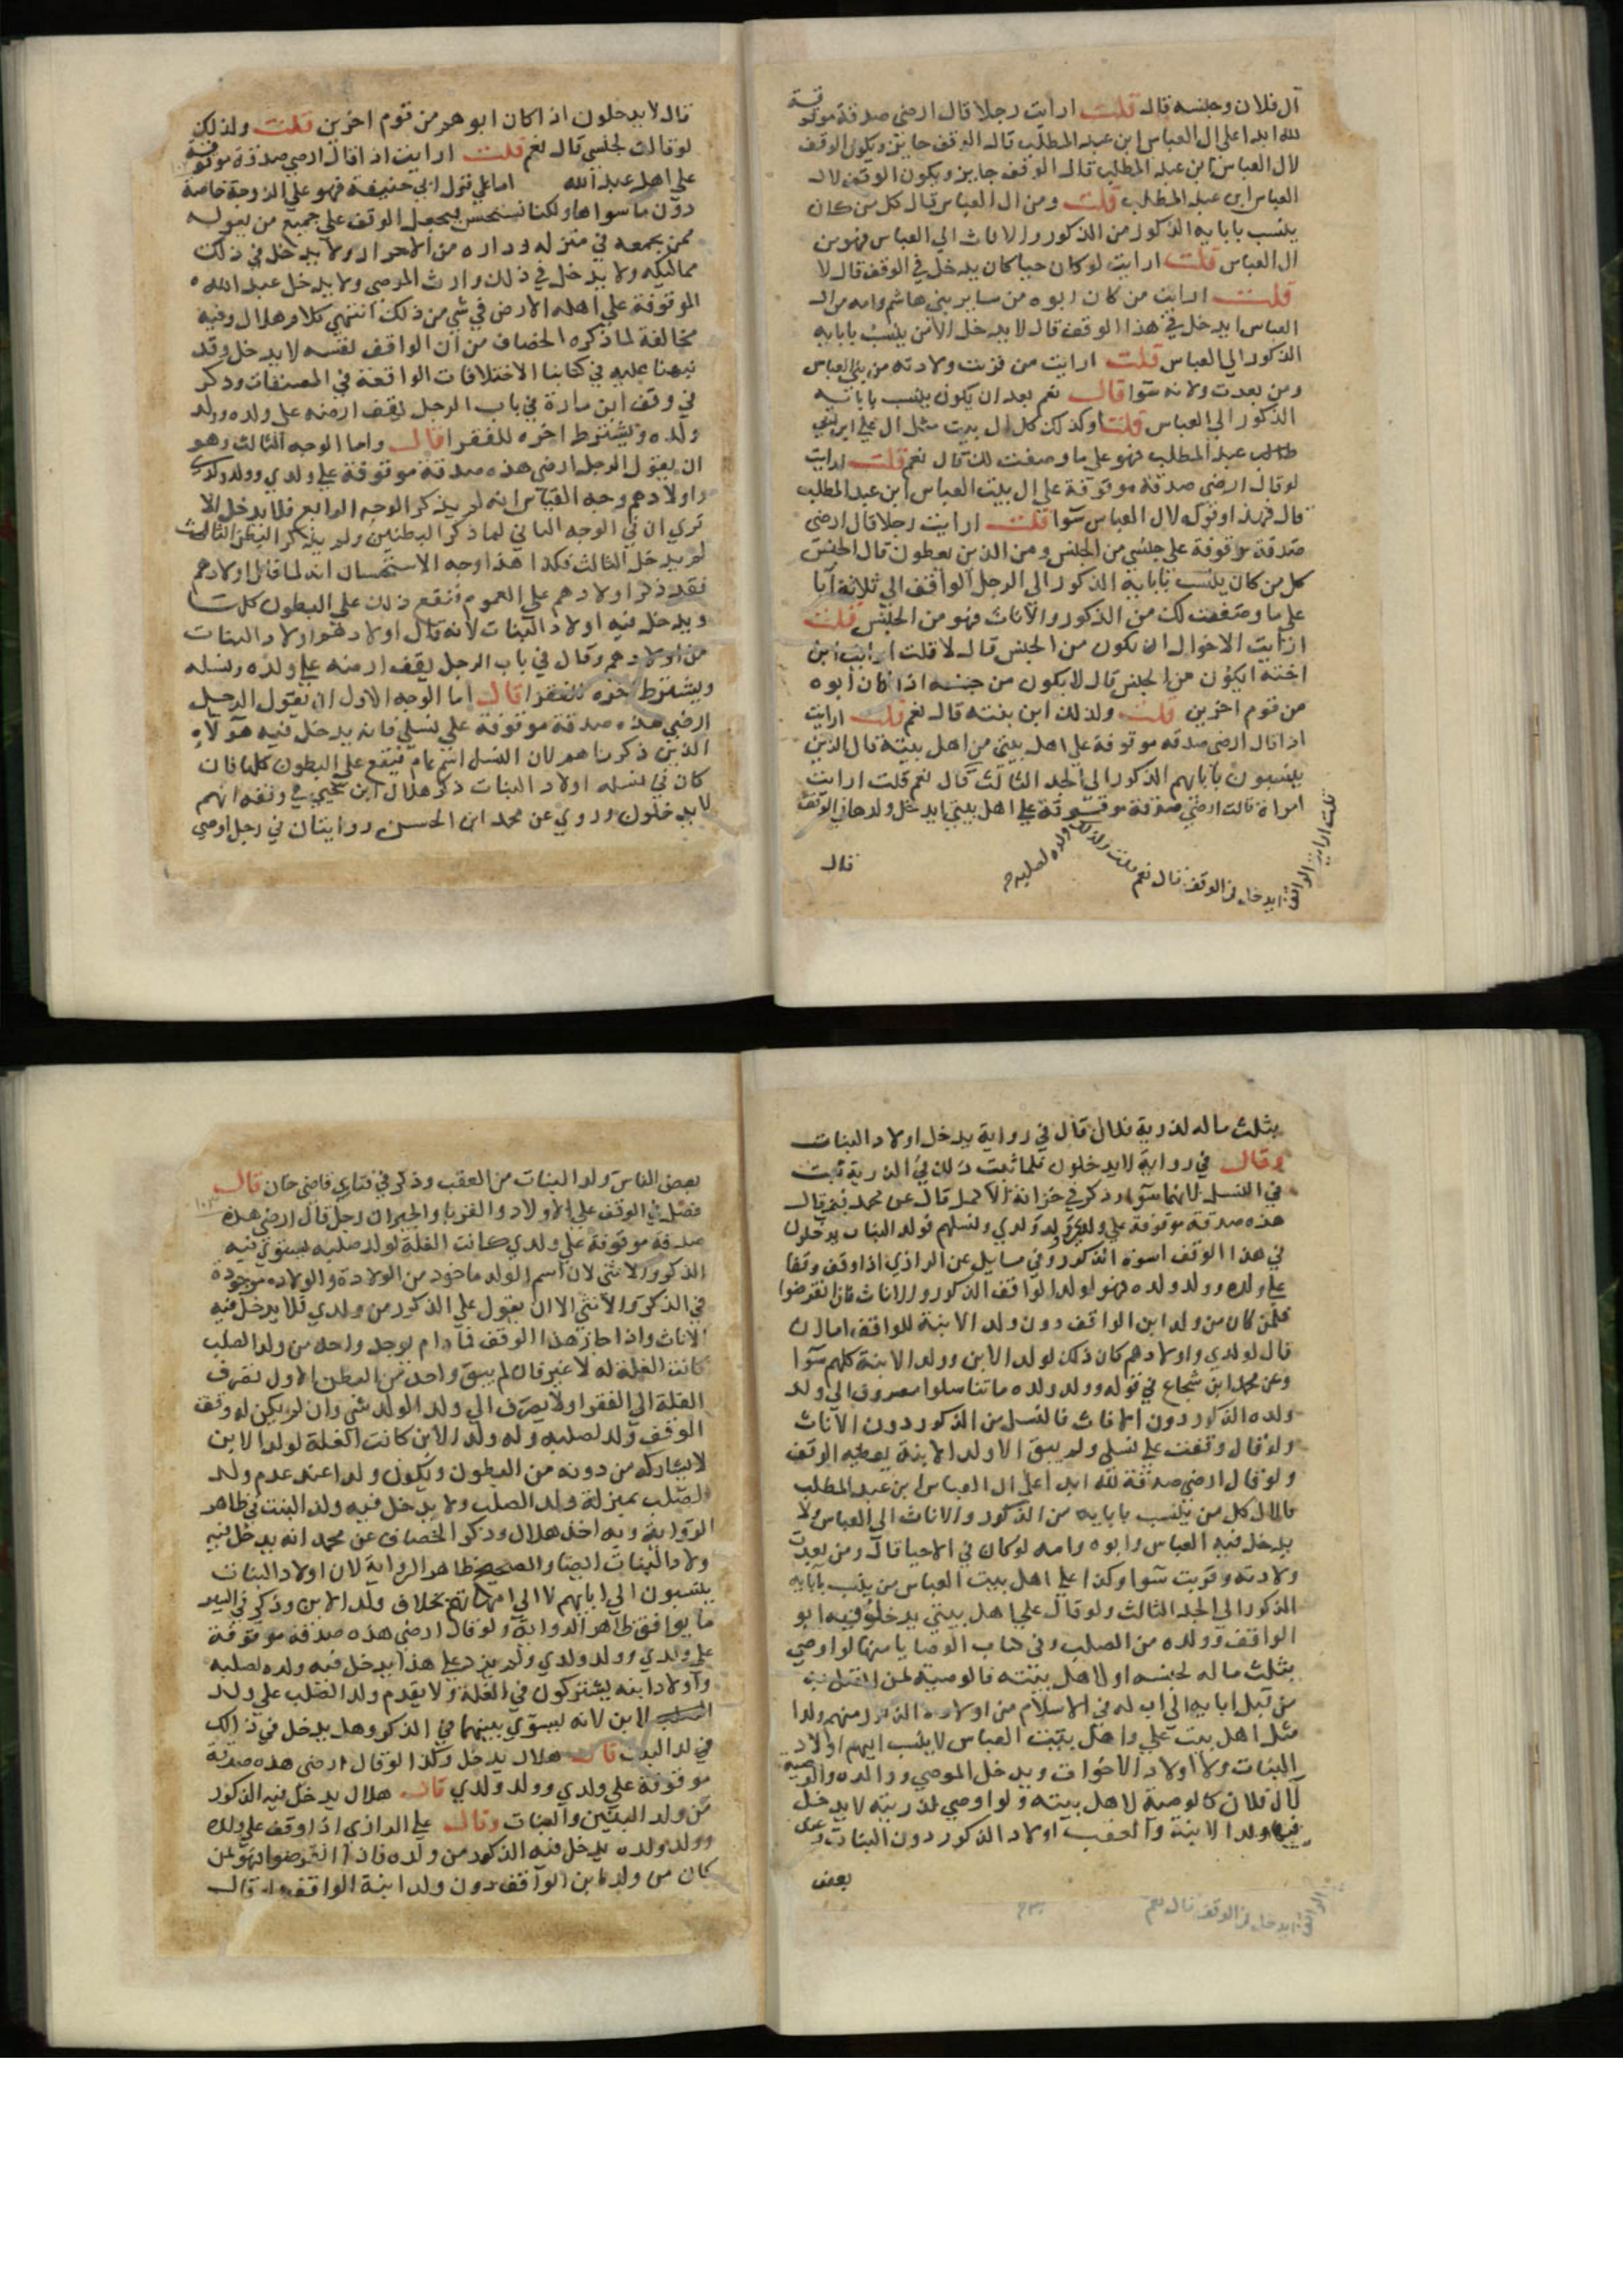 آل فلان وجنسه قال قلت ارايت رجلا قال ارضي صدقة موقوفة
لله ابدا على ال العباس ابن عبد المطلب قال الوقف جايز ويكون الوقف
لال العباس ابن عبد المطلب قال الوقف جايز ويكون الوقف لال
العباس ابن عبد المطلب قلت ومن ال العباس قال كل من كان
ينسب بابايه الذكور من الذكور والاناث الي العباس فهو من
ال العباس قلت ارايت لو كان حيا كان يدخل في الوقف قال لا
قلت ارايت من كان ابوه من ساير بني هاشم وامه من ال
العباس ايدخل في هذا الوقف قال لا يدخل الا من ينسب بابايه
الذكور الي العباس قلت ارايت من قربت ولادته من بني العباس
ومن بعدت ولادته سوا قال نعم بعد ان يكون ينسب بابائه
الذكور الي العباس قلت وكذلك كل ال بيت مثل ال علي ابن ابي
طالب عبد المطلب فهو على ما وصفت لك قال نعم قلت ارايت
لو قال ارضي صدقة موقوفة على ال بيت العباس ابن عبد المطلب
قال فهذا وقوله لال العباس سوا قلت ارايت رجلا قال ارضي
صدقة موقوفة على جنسي من الجنس ومن الذين يعطون قال الجنس
كل من كان ينسب بابايه الذكور الى الرجل الواقف الي ثلاثة آبا
على ما وصفت لك من الذكور والاناث فهو من الجنس قلت
ارايت الاخوال ان يكون من الجنس قال لا قلت ارايت ابن
اخته ايكون من الجنس قال لا يكون من جنسه اذا كان ابوه
من قوم اخرين قلت ولذلك ابن بنته قال نعم قلت ارايت
اذا قال ارضي صدقه موقوفة على اهل بيتي من اهل بيته قال الذين
ينسبون بابايهم الذكور الى الجد الثالث قال نعم قلت ارايت
امراة قالت ارضي صدقة موقوفة على اهل بيتي ايدخل ولدها في الوقف
قلت ارايت الواقف ايدخل في الوقف قال نعم قلت وكذلك ولده لصلبه
قال
قال لا يدخلون اذا كان ابوهم من قوم اخرين قلت ولذلك
لو قالت لجنسي قال نعم قلت ارايت اذا قال ارضي صدقة موقوفة
على اهل عبد الله اما على قول ابي حنيفة فهو على الزوجة خاصة
دون ما سواها ولكنا نستحسن فيجعل الوقف على جميع من يعوله
ممن يجمعه في منزله وداره من الاحرار ولا يدخل في ذلك
مماليكه ولا يدخل في ذلك وارث الموصي ولا يدخل عبد الله
الموقوفة على اهله الارض في شي من ذلك انتهي كلام هلال وفيه
مخالفة لما ذكره الخصاف من ان الواقف نفسه لا يدخل وقد
نبهنا عليه في كتابنا الاختلافات الواقعة في المصنفات وذكر
في وقف ابن مازة في باب الرجل يقف ارضه على ولده وولد
ولده ويشترط اخره للفقرا قال واما الوجه الثالث وهو
ان يقول الرجل ارضي هذه صدقة موقوفة على ولدي وولد ولدي
واولادهم وجه القياس انه لم يذكر الوجه الرابع فلا يدخل الا
تري ان في الوجه الثاني لما ذكر البطنين ولم يذكر البطن الثالث
لم يدخل الثالث فكذا هذا وجه الاستحسان انه لما قال اولادهم
فقد ذكر اولادهم على العموم فيقع ذلك على البطون كلها
ويدخل فيه اولاد البنات لانه قال اولادهم واولاد البنات
من اولادهم وقال في باب الرجل يقف ارضه على ولده ونسله
ويشترط اخره للفقرا قال اما الوجه الاول ان يقول الرجل
ارضي هذه صدقة موقوفة على نسلي فانه يدخل فيه هولاء
الذين ذكرنا هم لان النسل اسم عام فيقع على البطون كلها فان
كان في نسله اولاد البنات ذكر هلال ابن يحيى في وقفه انهم
لا يدخلون وروي عن محمد ابن الحسن روايتان في رجل اوصي
بثلث ماله لذرية فلان قال في رواية يدخل اولاد البنات
وقال في رواية لا يدخلون فلما ثبت ذلك في الذرية ثبت
في النسل لانهما سوا وذكر في خزانة الاكمل قال عن محمد فيمن قال
هذه صدقة موقوفة على ولدي وولد ولدي ونسلهم فولد البنات يدخلون
في هذا الوقف اسوة الذكور وفي مسايل عن الرازي اذا وقف وقفا
على ولده وولد ولده فهو لولد الواقف الذكور والاناث فان انقرضوا
فلمن كان من ولد ابن الواقف دون ولد الابنة للواقف اما لو
قال لولدي واولادهم كان ذلك لولد الابن وولد الابنة كلهم سوا
وعن محمد ابن شجاع في قوله وولد ولده ما تناسلوا مصروف الى ولد
ولده الذكور دون الاناث فالنسل من الذكور دون الاناث
ولو قال وقفت على نسلي ولم يبق الا ولد الابنة يعطيه الوقف
ولو قال ارضي صدقة لله ابدا على ال العباس ابن عبد المطلب
فالال كل من ينسب بابايه من الذكور والاناث الى العباس ولا
يدخل فيه العباس وابوه وامه لو كان في الاحيا قال ومن بعدت
ولادته وقربت سوا وكذا على اهل بيت العباس من ينسب بآبايه
الذكور الى الجد الثالث ولو قال على اهل بيتي يدخل فيه ابو
الواقف وولده من الصلب وفي كتاب الوصايا منها لو اوصي
بثلث ماله لجنسه او لاهل بيته فالوصية لمن
من قبل ابايه الى اب له في الاسلام من اولاده الذكور منهم ولدا
مثل اهل بيت علي واهل بيت العباس لا ينسب اليهم اولاد
البنات ولا اولاد الاخوات ويدخل الموصي ووالده والوصية
لال فلان كالوصية لاهل بيته ولو اوصي لذريته لا يدخل
فيها ولد الابنة والعقب اولاد الذكور دون البنات وعن
بعض
بعض الناس ولد البنات من العقب وذكر في فتاوي قاضي خان قال
فصل في الوقف على الاولاد والقربا والجيران رجل قال ارضي هذه
صدقة موقوفة على ولدي كانت الغلة لولد صلبه يستوي فيه
الذكر والانثي لان اسم الولد ماخوذ من الولادة والولادة موجودة
في الذكر والانثي الا ان يقول على الذكور من ولدي فلا يدخل فيه
الاناث واذا جاز هذا الوقف فما دام يوجد واحد من ولد الصلب
كانت الغلة له لا غير فان لم يبق واحد من البطن الاول تصرف
الغلة الى الفقرا ولا يصرف الي ولد الولد شي وان لم يكن له وقت
الوقف ولد لصلبه وله ولد الابن كانت الغلة لولد الابن
لا يشاركه من دونه من البطون ويكون ولد الابن عند عدم ولد
الصلب بمنزلة ولد الصلب ولا يدخل فيه ولد البنت في ظاهر
الرواية وبه اخذ هلال وذكر الخصاف عن محمد انه يدخل فيه
ولاد البنات ايضا والصحيح ظاهر الرواية لان اولاد البنات
ينسبون الى ابايهم لا الى امهاتهم بخلاف ولد الابن وذكر في السير
ما يوافق ظاهر الرواية ولو قال ارضي هذه صدقة موقوفة
على ولدي وولد ولدي ولم يزد على هذا يدخل فيه ولده لصلبه
واولاد ابنه يشتركون في الغلة ولا يقدم ولد الصلب على ولد
الابن لانه يسوي بينهما في الذكر وهل يدخل في ذلك
ولد البنت قال هلال يدخل وكذا لو قال ارضي هذه صدقة
موقوفة على ولدي وولد ولدي قال هلال يدخل فيه الذكور
من ولد البنين والبنات وقال علي الرازي اذا وقف على ولده
وولد ولده يدخل فيه الذكور من ولده فاذا انقرضوا فهو لمن
كان من ولد ابن الواقف دون ولد ابنة الواقف ولو قال